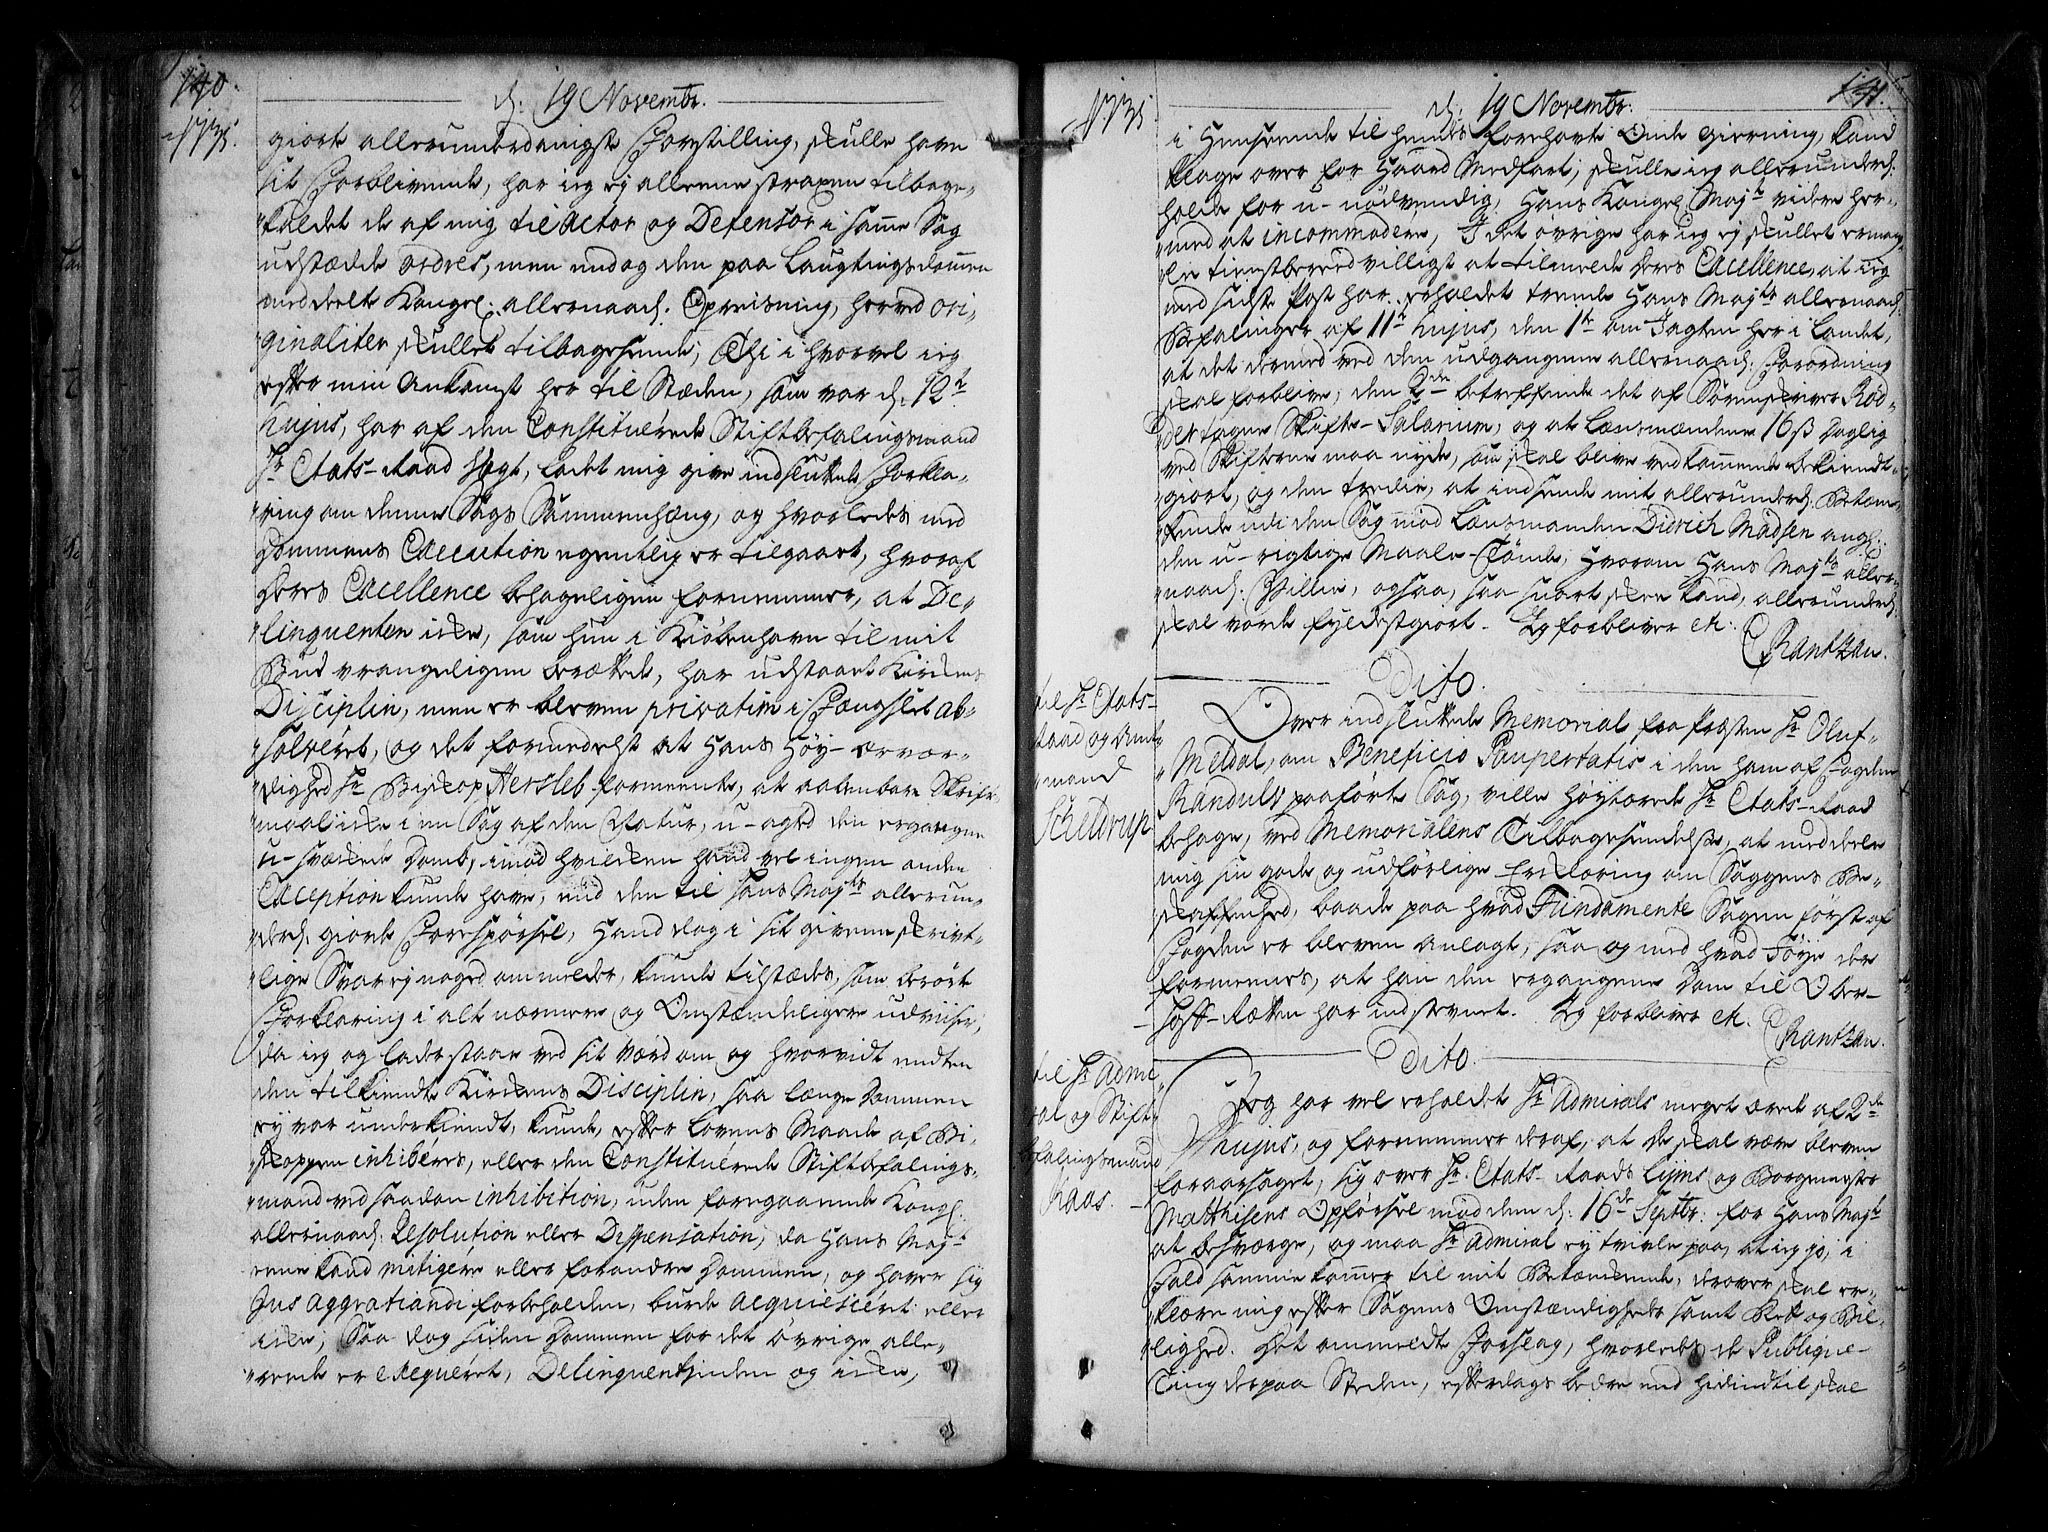 140.
d. 19 Novembr.
1735.
giort allerunderdanigst Forestilling, skulle have
sit Forblivende, har ieg ej alleene straxen tilbage-
kaldet de af mig til Actor og Defensor i samme Sag
udstædde ordres, men endog den paa Laugtingsdommen
meddeelte Kongel: allernaad: Opreisning, herved ori-
ginaliter skullet tilbagesende; Thi i hvorvel ieg
efter min Ankomst her til Stæden, som var d. 12te
hujus, har af den Constituerede Stiftbefalingsmand
Hr Etats-Raad Vogt, ladet mig give indsluttede Forkla-
ring om denne Sags Sammenhæng, og hvorledes med
Dommens Execution egentlig er tilgaaet, hvoraf
Deres Excellence behageligen fornemmer, at De-
linquenten icke, som hun i Kiøbenhavn til mit
Bud vrangeligen berættede, har udstaaet Kirkens
Disciplin, men er bleven privatim i Fængslet ab-
solveret, og det formedelst at Hans Høy-ærvær-
dighed Hr Biskop Hersleb formeente, at aabenbare Skrifte-
maal icke i en Sag af den Natur, u-agted den ergangne
u-svækede Domb, imod hvilken hand vel ingen anden
Exception kunde have, end den til Hans Majts allerun-
derd. giorde Forespørsel, Hand dog i sit givene skrivt-
lige Svar ej noged ommelder, kunde tilstædes, som berørte
Forklaring i alt nærmere og Omstændeligere udviiser;
da ieg og lader staae ved sit Værd om og hvorvidt endten
den tilkiendte Kirkens Disciplin, saa længe Dommen
ej var underkiendt, kunde, efter Lovens Maade af Bi-
skoppen inhiberes, eller den Constituerede Stiftbefalings-
mand ved saadan inhibition, uden foregaaende Kongl.
allernaad: Resolution eller Dispensation, da Hans Majt
eene kand mitigere eller forandre Dommen, og haver sig
Jus Aggratiandi forbeholden, burde acquiesceret eller
icke; Saa dog siden Dommen for det øvrige alle-
rede er exequeret, Delinquentinden og icke,
141.
d. 19 Novembr.
1735.
i Henseende til hendes forehavte Onde Gierning, kand
klage over for Haard Medfart; skulle ieg allerunderd.
holde for u-nødvendig, Hans Kongel. Majt videre her-
med at incommodere, I det øvrige har ieg ej skullet erman-
gle tienstberedvilligst at tilmelde Deres Excellence, at ieg
med sidste Post har erholdet trende Hans Majts allernaad:
Befalinger af 11te hujus, den 1te om Jagten her i Landet,
at det dermed ved den udgangne allernaad: Forordning
skal forblive, den 2den betreffende det af Sørenskriver Rød-
der tagne Skifte-Salarium, og at Lænsmændene 16 ß Daglig
ved Skifterne maa nyde, som skal blive vedkommende bekiendt-
giort, og den tredie, at indsende mit allerunderd. Betæn-
kende udi den Sag mod Lænsmanden Didrich Madsen ang:
den u-rigtige Maale-Tønde; Hvorom Hans Majts aller-
naad: Villie, ogsaa, saa snart skee kand, allerunderd.
skal vorde fyldestgiort. Jeg forbliver etc.
C Rantzau.
Dito.
til Hr Etats-
Raad og Amt-
mand
Scheldrup
Over indsluttede Memorial fra Præsten Hr Oluf
Meldal, om Beneficio Paupertatis i den ham af Fogden
Randulv paaførte Sag, ville Høytærede Hr Etats-Raad
behage, ved Memorialens Tilbagesendelse, at meddeele
mig sin gode og udførlige Erklæring om Saggens Be-
skaffenhed, baade paa hvad Fundamente Sagen først af
Fogden er bleven anlagt, saa og med hvad Føye der
formeenes, at han den ergangene Dom til Ober-
Hoff-Retten har indstevnet. Jeg forbliver etc.
C Rantzau.
Dito.
til Hr Admi-
ral og Stift-
befalingsmand
Kaas.
Jeg har vel erholdet Hr Admirals meget ærede af 2den
hujus, og fornemmer deraf, at De skal være bleven
foraarsaget, sig over Hr Etats-Raads Lyms og Borgemester
Matthisens Opførsel mod dem d: 16de Septbr: for Hans Majt
at besværge, og maa Hr Admiral ej tvivle paa, at ieg jo, i
Fald samme kommer til mit Betænkende, derover skal er-
klære mig efter Sagens Omstændigheder samt Rett og Bil-
lighed. Det ommeldte Forslag, hvorledes de Publique
Ting der paa Steden, efterdags bedre end hidindtil skal